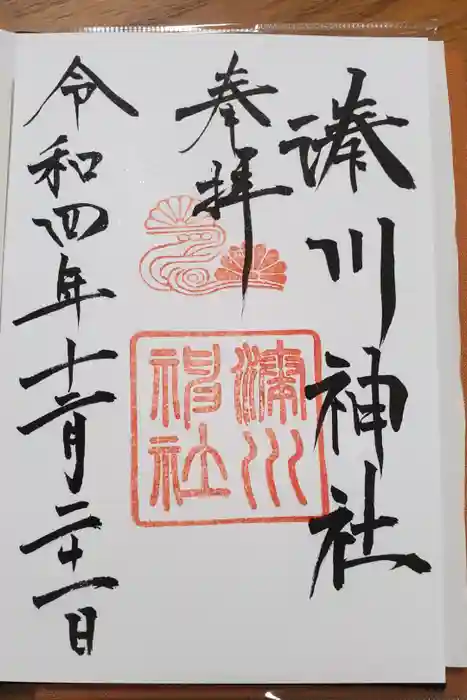 湊川神社
奉拝
湊川
神社
令和四年十二月二十一日